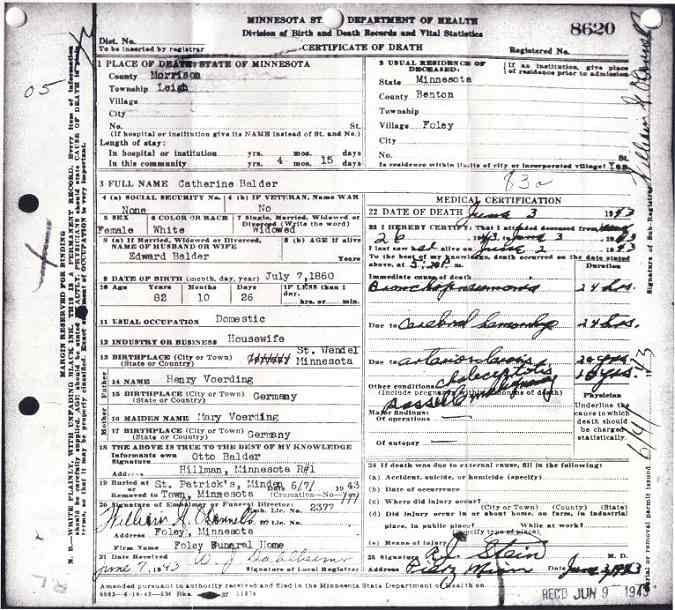 MINNESOTA ST DEPARTMENT OF HEALTH
Division of Birth and Death Records and Vital Statistics
8620
CERTIFICATE OF DEATH
Dist. No.
To be inserted by registrar
Registered No.
1 PLACE OF DEATH: STATE OF MINNESOTA
County Morrison
Township Leigh
Village
City
No. St.
(If hospital or institution give its NAME instead of St. and No.)
Length of stay:
In hospital or institution yrs. mos. days
In this community yrs. 4 mos. 15 days
2 USUAL RESIDENCE OF DECEASED:
(If an institution, give place of residence prior to admission
State Minnesota
County Benton
Township
Village Foley
City
No. St.
Is residence within limits of city or incorporated village? Yes
3 FULL NAME Catherine Balder
4 (a) SOCIAL SECURITY No. 4 (b) IF VETERAN, NAME WAR
None No
5 SEX 6 COLOR OR RACE 7 Single, Married, Widowed or Divorced (Write the word)
Female White Widowed
8 (a) If Married, Widowed or Divorced, NAME OF HUSBAND OR WIFE 8 (b) AGE if alive
Edward Balder Years
9 DATE OF BIRTH (month, day, year) July 7, 1860
10 Age Years Months Days IF LESS than 1 day,
82 10 26 hrs. or min.
11 USUAL OCCUPATION Domestic
12 INDUSTRY OR BUSINESS Housewife
13 BIRTHPLACE (City or Town) St. Wendel
(State or Country) Minnesota
Father
14 NAME Henry Voerding
15 BIRTHPLACE (City or Town)
(State or Country) Germany
Mother
16 MAIDEN NAME Mary Voerding
17 BIRTHPLACE (City or Town)
(State or Country) Germany
18 THE ABOVE IS TRUE TO THE BEST OF MY KNOWLEDGE
Informants own Signature Otto Balder
Address Hillman, Minnesota R#1
19 Buried at St. Patrick's, Minden 6/7/ 1943
Removed to Town, Minnesota (Cremation—No
20 Signature of Embalmer or Funeral Director: Emb. Lic. No. 2377
Address Foley, Minnesota
Firm Name Foley Funeral Home
21 Date Received
June 7, 1943
Signature of Local Registrar
MEDICAL CERTIFICATION
22 DATE OF DEATH June 3 1943
23 I HEREBY CERTIFY, That I attended deceased from
26 1943, June 3 1943
I last saw h alive on June 2 1943
To the best of my knowledge, death occurred on the date stated above, at
Duration
Immediate cause of death
Bronchopneumonia 24 hrs.
Due to cerebral hemorrhage 24 hrs.
Due to
Other conditions
(Include pregnancy within 3 months of death)
Major findings:
Of operations
Of autopsy
Physician
Underline the cause to which death should be charged statistically.
24 If death was due to external cause, fill in the following:
(a) Accident, suicide, or homicide (specify)
(b) Date of occurrence
(c) Where did injury occur? (City or Town) (County) (State)
(d) Did injury occur in or about home, on farm, in industrial place, in public place? While at work?
(Specify type of place)
(e) Means of injury
25 Signature R J Stein M. D.
Address Pierz Minn Date June 3, 1943
REC'D JUN 9 1943
Amended pursuant to authority received and filed in the Minnesota State Department of Health on
MARGIN RESERVED FOR BINDING
N. B.—WRITE PLAINLY, WITH UNFADING BLACK INK, THIS IS A PERMANENT RECORD. Every item of information should be carefully supplied. AGE should be stated EXACTLY. PHYSICIANS should state CAUSE OF DEATH in plain terms, so that it may be properly classified. Exact statement of OCCUPATION is very important.
Signature of Sub-Registrar
6/4/43